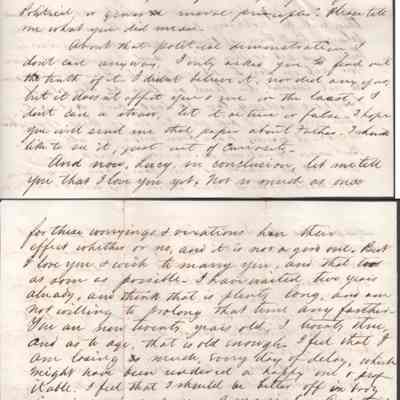 Political, or general moral principles? Please tell
me what you did mean.
About that political demonstration, I
don't care anyway. I only asked you to find out
the truth of it. I didn't believe it, nor did any one,
but it doesn't affect you & me in the least, & I
don't care a straw, let it be true or false. I hope
you will send me that paper about Father. I should
like to see it, just out of curiosity.
And now, Lucy, in conclusion, let me tell
you that I love you yet, Not so much as once
for these worryings & vexations have their
effect whether or no, and it is not a good one. But
I love you & wish to marry you, and that too
as soon as possible. I have waited, two years
already, and think that is plenty long, and am
not willing to prolong that time any farther.
You are now twenty years old, I twenty three,
and as to age, that is old enough. I feel that I
am losing so much, every day of delay, which
might have been rendered a happy one & prof-
itable. I feel that I should be better off in body